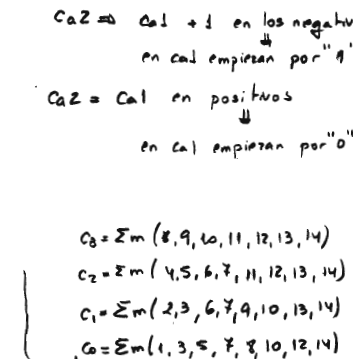 Ca2 ⇒ Ca1 + 1 en los negativ
⇓
en ca1 empiezan por "1"
Ca2 = Ca1 en positivos
⇓
en Ca1 empiezan por "0"
C₃ = Σm (8, 9, 10, 11, 12, 13, 14)
C₂ = Σm (4, 5, 6, 7, 11, 12, 13, 14)
C₁ = Σm (2, 3, 6, 7, 9, 10, 13, 14)
C₀ = Σm (1, 3, 5, 7, 8, 10, 12, 14)